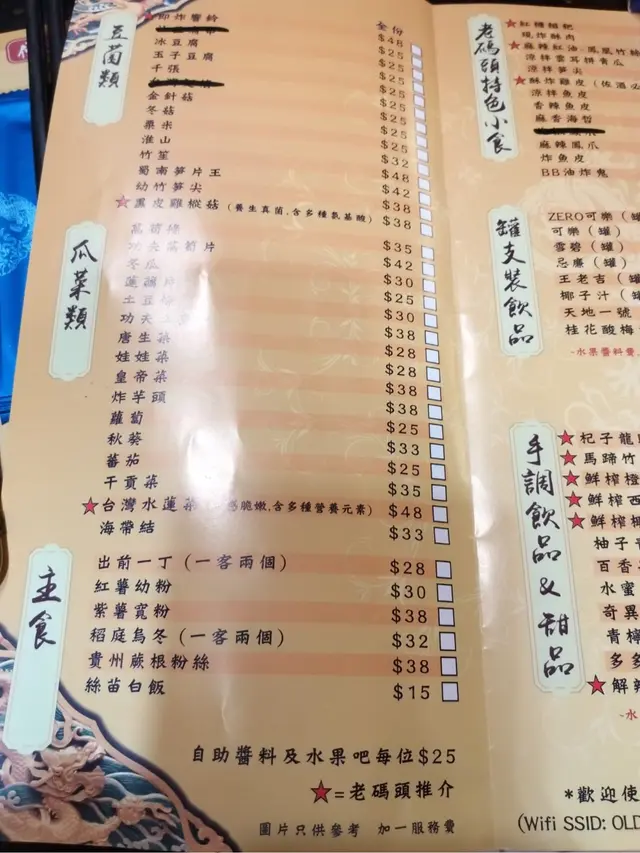 豆菌類
全份
★即炸響鈴 $48
冰豆腐
玉子豆腐
千張
金針菇
冬菇
粟米
淮山
竹笙
蜀南筍片王
幼竹筍尖
★黑皮雞樅菇（養生真菌,含多種氨基酸） $38
瓜菜類
萵筍條 $35
功夫萵筍片 $42
冬瓜 $30
蓮藕片 $25
土豆 $30
功夫土 $38
唐生菜 $28
娃娃菜 $28
皇帝菜 $38
炸芋頭 $38
蘿蔔 $25
秋葵 $33
蕃茄 $25
干貢菜 $35
★台灣水蓮菜 脆嫩,含多種營養元素） $48
海帶結 $33
主食
出前一丁（一客兩個） $28
紅薯幼粉 $30
紫薯寬粉 $38
稻庭烏冬（一客兩個） $32
貴州蕨根粉絲 $38
絲苗白飯 $15
自助醬料及水果吧每位$25
★=老碼頭推介
圖片只供參考 加一服務費
老碼頭特色小食
★紅糖糍粑
現炸酥肉
★麻辣紅油
涼拌雲耳拼青瓜
涼拌筍尖
★酥炸雞皮（佐酒必
涼拌魚皮
香辣魚皮
麻香海蜇
麻辣鳳爪
炸魚皮
BB油炸鬼
罐支裝飲品
ZERO可樂（罐）
可樂（罐）
雪碧（罐）
忌廉（罐）
王老吉（罐
椰子汁（罐
天地一號
桂花酸梅
-水果醬料費
手調飲品&甜品
★杞子龍
★馬蹄竹
★鮮榨橙
★鮮榨西
★鮮榨椰
柚子
百香
水蜜
奇異
青檸
多多
★解辣
-水
*歡迎使
(Wifi SSID: OLD